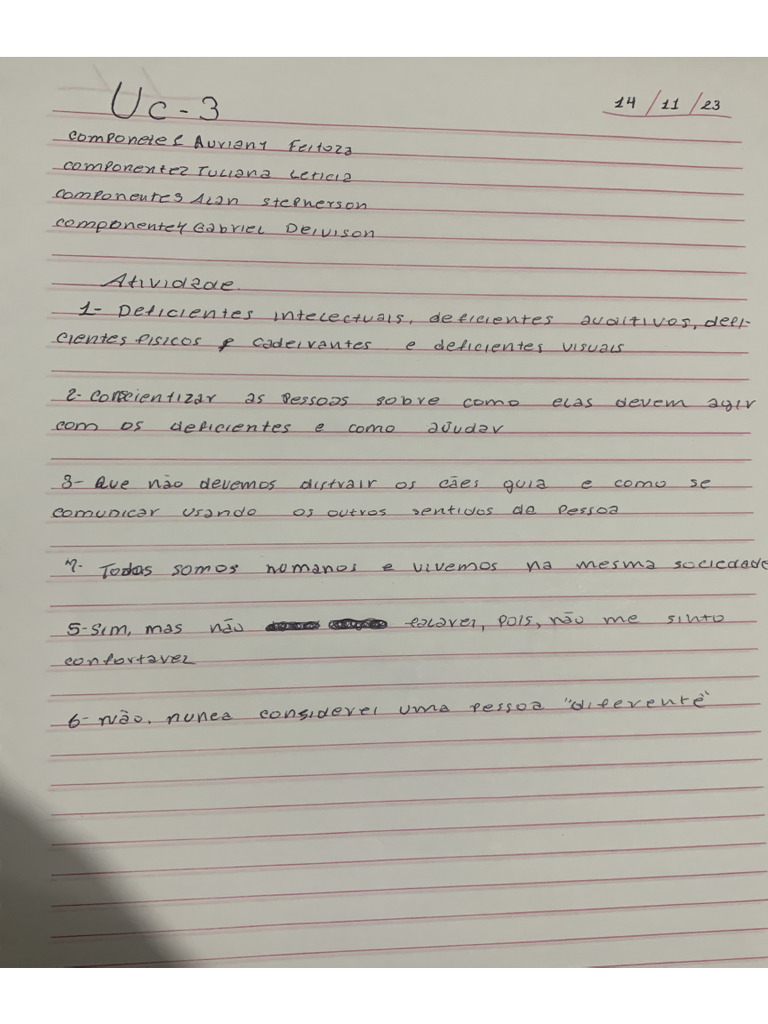 Uc-3
14/11/23
componete 1 Auriany Feitoza
componente2 Juliana Leticia
componente3 Alan stepherson
componente4 Gabriel Deivison
Atividade.
1- Deficientes intelectuais, deficientes auditivos, defi-
cientes fisicos e cadeirantes e deficientes visuais
2- conscientizar as pessoas sobre como elas devem agir
com os deficientes e como ajudar
3- Que não devemos distrair os cães guia e como se
comunicar usando os outros sentidos da pessoa
4- Todos somos humanos e vivemos na mesma sociedade
5-Sim, mas não falarei, pois, não me sinto
confortavel
6- não, nunca considerei uma pessoa "diferente"